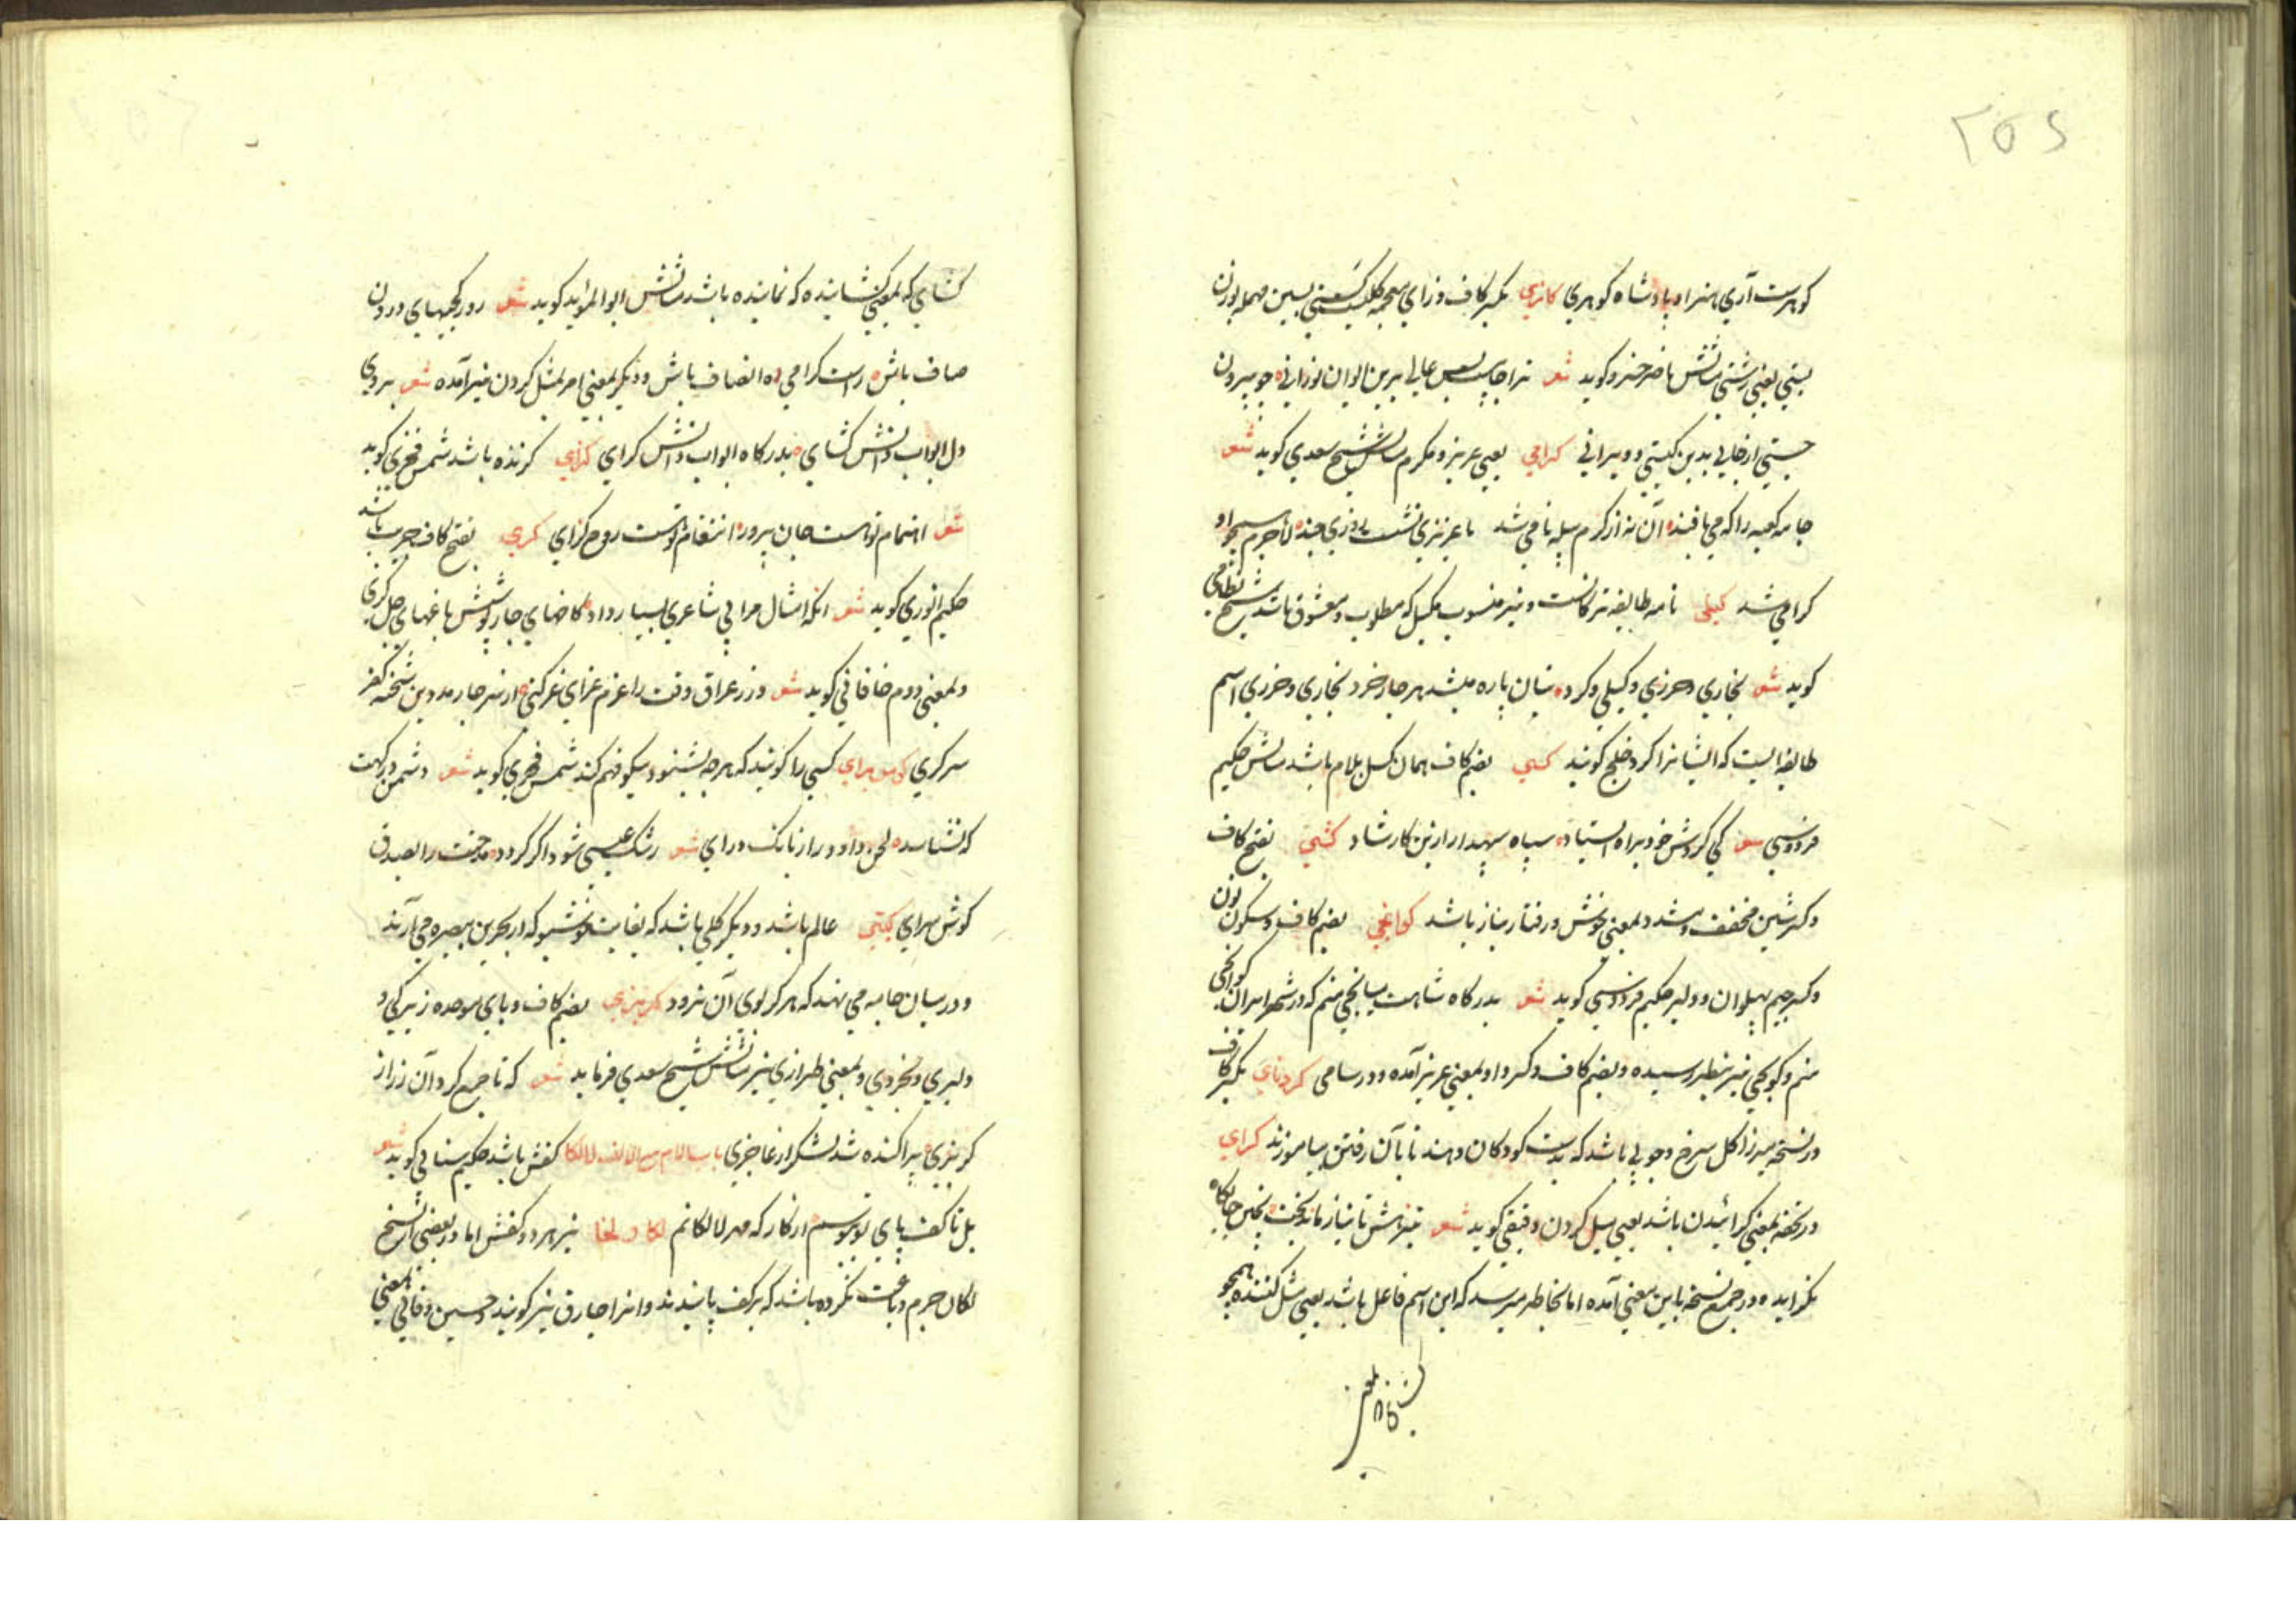 ۲۵۶
کوهرست آری هنر او پادشاه کوهری کازی بکسر کاف و زای معجمه بسین مهمله بوزن
بستی یعنی زشتی مثالش ناصر خسرو کوید شعر ترا عالی برین ایوان نورانی چو بیرون
جستی از جایی بدین کیتی و ویرانی کرامی یعنی عزیز و مکرم مثالش شیخ سعدی کوید شعر
جامه کعبه را که می بافند آن نه از کرم پیله نامی شد با عزیزی نشست روزی چند لاجرم همچو او
کرامی شد کیلی نام طایفه ترکانست و نیز منسوب بکیل که مطلوب و معشوق باشد شیخ نظامی
کوید شعر بخاری و خزری و کیلی و کرد بنان پاره هر چار خرد بخاری و خزری اسم
طایفه ایست که ایشانرا کرد خلج کویند کسی بضم کاف همان کسل بلام باشد مثالش حکیم
فردوسی شعر کی کردش خود براه ایستاد سپاه سپهدار ازین کار شاد کشی بفتح کاف
و کسر شین مخفف و مشدد بمعنی خوش و رفتار بناز باشد کوانجی بضم کاف و سکون نون
و کسر جیم پهلوان و دلیر حکیم فردوسی کوید شعر بدرکاه شاهت میانجی منم که در شهر ایران کوانجی
منم و کوانجی نیز بنظر رسیده و بضم کاف و کسر واو بمعنی عزیز آمده و در سامی کردنای بکسر کاف
در نسخه میرزا کل سرخ و چوبی باشد که بدست کودکان دهند تا بآن رفتن بیاموزند کرای
در تحفه بمعنی کرائیدن باشد یعنی میل کردن دقیقی کوید شعر
بکراید و در جمیع نسخ باین معنی آمده اما بخاطر میرسد که این اسم فاعل باشد یعنی میل کننده همچو
کشای که بمعنی کشاینده که نماینده باشد مثالش ابوالمؤید کوید شعر رو ز کجیهای درون
صاف باش راست کرای ره انصاف باش و دیکر بمعنی امر بمیل کردن نیز آمده شعر بر وی
دل ابواب دانش کشای بدرکاه ابواب دانش کرای کزای کزنده باشد شمس فخری کوید
شعر اهتمام توست جان پرور انتقام توست روح کزای کری بفتح کاف جریب باشد
حکیم انوری کوید شعر انکه امثال مرا بی شاعری بسیار داد کاخهای چار پوشش باغهای چل کری
و بمعنی دوم خاقانی کوید شعر در عراق وقت را عزم غزای غز کنی از سر چار حد دین شحنه کفر
سرکری کوش سرای کسی را کویند که هر چه بشنود نیکو فهم کند شمس فخری کوید شعر دشمن درکهت
که نشناسد لحن داود را ز بانک درای شعر رشک عیسی شود اکر کردد مدحت را بصدق
کوش سرای کیتی عالم باشد و دیکر کلی باشد که بغایت خوشبو که از بحرین ببصره می آرند
و در میان جامه می نهند که هرکز بوی آن نرود کربزی بضم کاف و بای موحده زیرکی و
دلیری و بخردی و بمعنی طراری نیز مثالش شیخ سعدی فرماید شعر که تا جمع کرد آن زر از
کربزی پراکنده شد لشکر از عاجزی باب اللام مع الالف لالکا کفش باشد حکیم سنایی کوید شعر
بل تا کف پای تو ببوسم انکار که مهر لالکاتم لکا و لخا نیز هر دو کفش اما در بعضی از نسخ
لکان چرم دباغت نکرده باشد که بر کف پا بندند و انرا چارق نیز کویند و حسین وفائی بمعنی